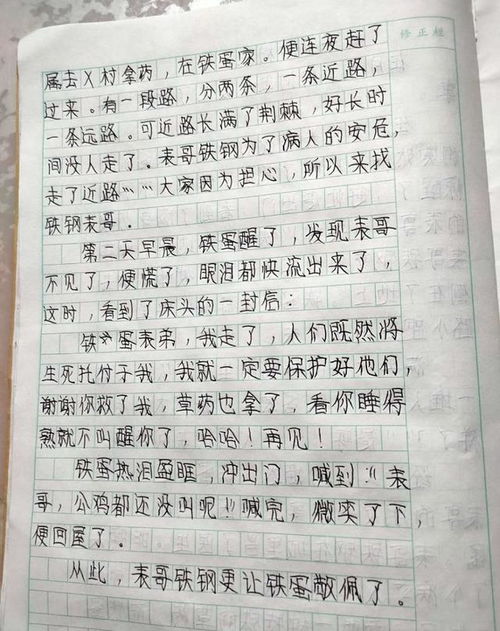 修正栏
属去X村拿药，在铁蛋家。便连夜赶了
过来。有一段路，分两条，一条近路，
一条远路。可近路长满了荆棘，好长时
间没人走了。表哥铁钢为了病人的安危，
走了近路……大家因为担心，所以来找
铁钢表哥。
第二天早晨，铁蛋醒了，发现表哥
不见了，便慌了，眼泪都快流出来了，
这时，看到了床头的一封信：
铁蛋表弟，我走了，人们既然将
生死托付于我，我就一定要保护好他们，
谢谢你救了我，草药也拿了，看你睡得
熟就不叫醒你了，哈哈！再见！
铁蛋热泪盈眶，冲出门，喊到："表
哥，公鸡都还没叫呢！"喊完，微笑了下，
便回屋了。
从此，表哥铁钢更让铁蛋敬佩了。